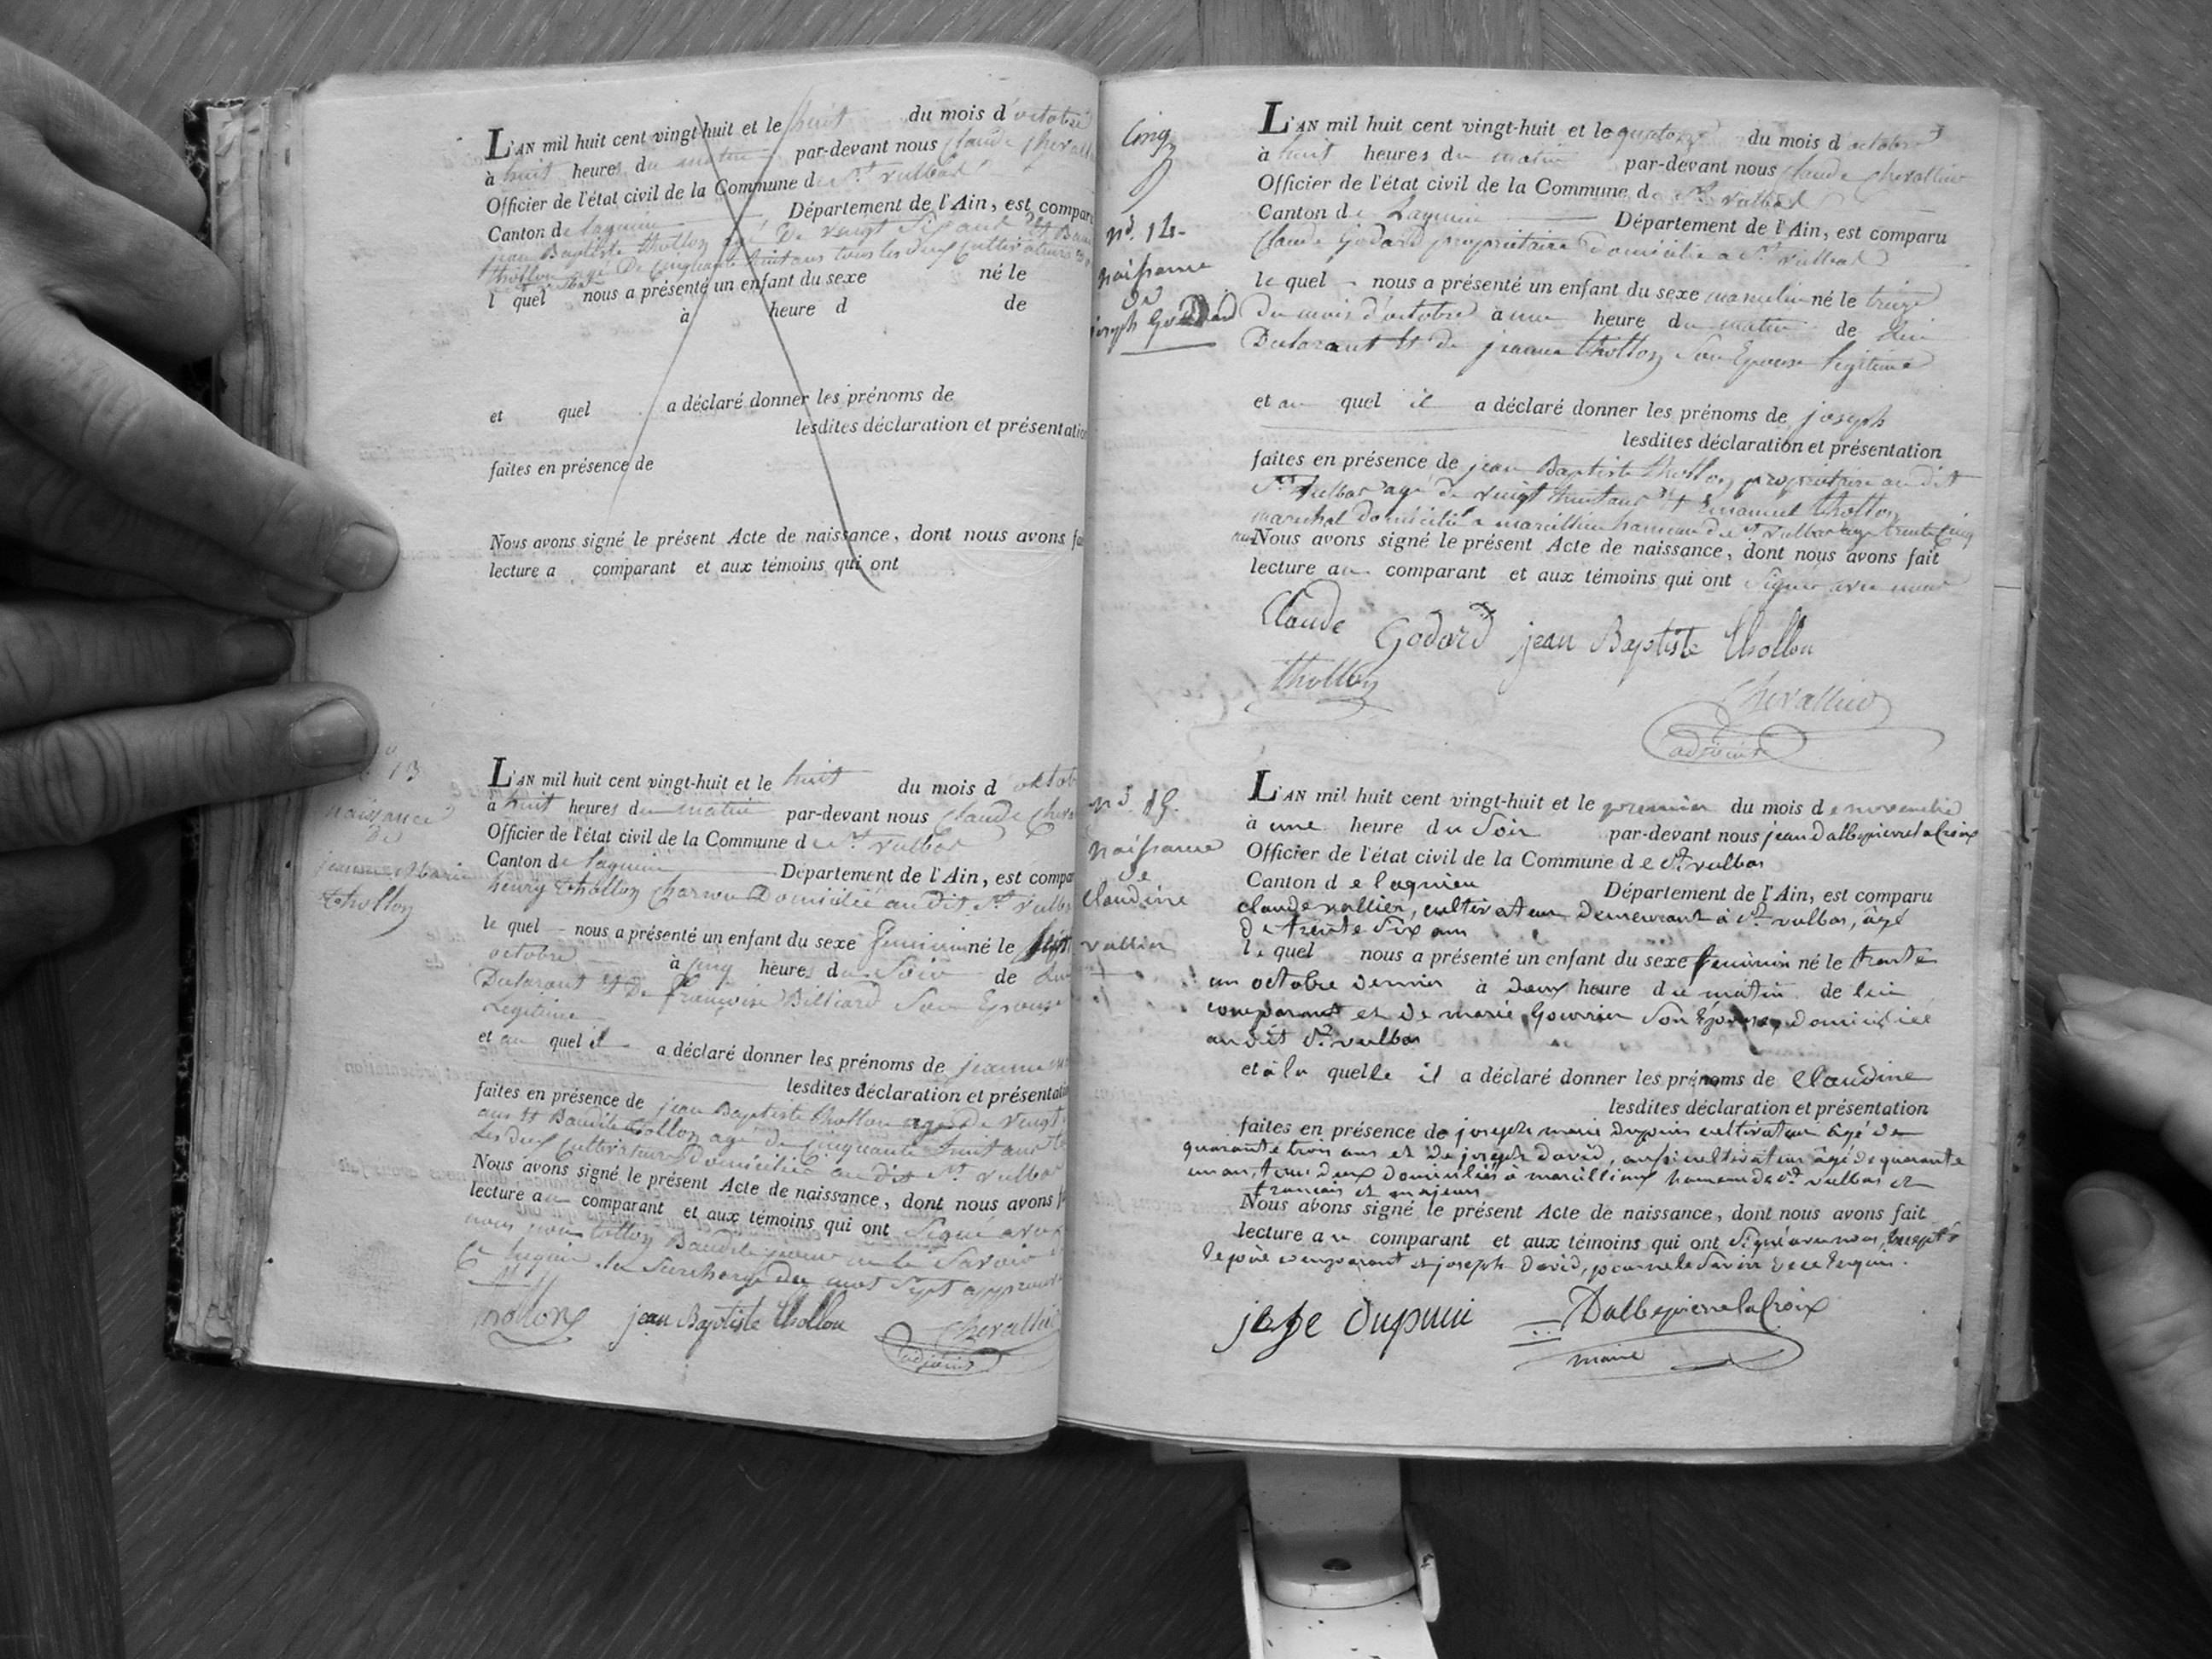 L'AN mil huit cent vingt-huit et le huit du mois d'octobre
à huit heures du matin par-devant nous Claude Cheval
Officier de l'état civil de la Commune de St. vulbas
Canton de lagnieu Département de l'Ain, est compar
jean Baptiste thollon agé de vingt ans et Baud
thollon agé De Cinquante huit ans tous les deux Cultivateurs
l quel nous a présenté un enfant du sexe né le
à heure d de
et quel a déclaré donner les prénoms de
lesdites déclaration et présentatio
faites en présence de
Nous avons signé le présent Acte de naissance, dont nous avons fa
lecture a comparant et aux témoins qui ont
13
naissance
de
jeanne Marie
thollon
L'AN mil huit cent vingt-huit et le huit du mois d octob
à huit heures du matin par-devant nous Claude Cheva
Officier de l'état civil de la Commune de St. vulbas
Canton de lagnieu Département de l'Ain, est compa
henry thollon Charron Domicilié au Dit St. vulba
le quel nous a présenté un enfant du sexe feminin né le sept
octobre à cinq heures du Soir de lui
Declarant et De françoise Billiard Son Epouse
Legitime
et au quel il a déclaré donner les prénoms de jeanne
lesdites déclaration et présentati
faites en présence de jean Baptiste thollon agé De vingt
ans et Baudile thollon agé de Cinquante huit ans
Les deux Cultivateurs domiciliés au dit St. vulbas
Nous avons signé le présent Acte de naissance, dont nous avons f
lecture au comparant et aux témoins qui ont Signé avec
nous non thollon Baudile pour ne le Savoir
Ce requis. la Surcharge du mot Sept approuvé
thollon jean Baptiste thollon Chevallier
adjoint
Cinq
nd. 14.
naissance
de
joseph Godard
L'AN mil huit cent vingt-huit et le quatorze du mois d'octobre
à huit heures du matin par-devant nous Claude Chevallier
Officier de l'état civil de la Commune de St. vulbas
Canton de Lagnieu Département de l'Ain, est comparu
Claude Godard propriétaire Domicilié a St. vulbas
le quel nous a présenté un enfant du sexe masculin né le treize
Du mois d'octobre à une heure du matin de lui
Declarant et de jeanne thollon Son Epouse legitime
et au quel il a déclaré donner les prénoms de joseph
lesdites déclaration et présentation
faites en présence de jean Baptiste thollon propriétaire au dit
St. vulbas agé de vingt huit ans et Emanuel thollon
marechal domicilié a marcillieu hameau de St. vulbas agé trente Cinq
ans Nous avons signé le présent Acte de naissance, dont nous avons fait
lecture au comparant et aux témoins qui ont Signé avec nous
Claude Godard jean Baptiste thollon
thollon
Chevallier
adjoint
nd. 15.
naissance
de
claudine
vallier
L'AN mil huit cent vingt-huit et le premier du mois de novembre
à une heure du Soir par-devant nous jean Dalbepierre la Croix
Officier de l'état civil de la Commune de St. vulbas
Canton de lagnieu Département de l'Ain, est comparu
claude vallier, cultivateur demeurant à St. vulbas, âgé
de trente Six ans
le quel nous a présenté un enfant du sexe feminin né le trente
un octobre dernier à deux heure du matin de lui
comparant et de marie Gourrier Son Epouse, domiciliée
au dit St. vulbas
et à la quelle il a déclaré donner les prénoms de Claudine
lesdites déclaration et présentation
faites en présence de joseph marie Dupuis cultivateur âgé de
quarante trois ans et de joseph david, aussi cultivateur âgé de quarante
un an, tous deux domiciliés à marcillieux hameau de St. vulbas et
francais et majeurs
Nous avons signé le présent Acte de naissance, dont nous avons fait
lecture au comparant et aux témoins qui ont Signé avec nous, excepté
le père comparant et joseph David, pour ne le Savoir de ce Enquis.
Dupuui Dalbepierre la Croix
maire